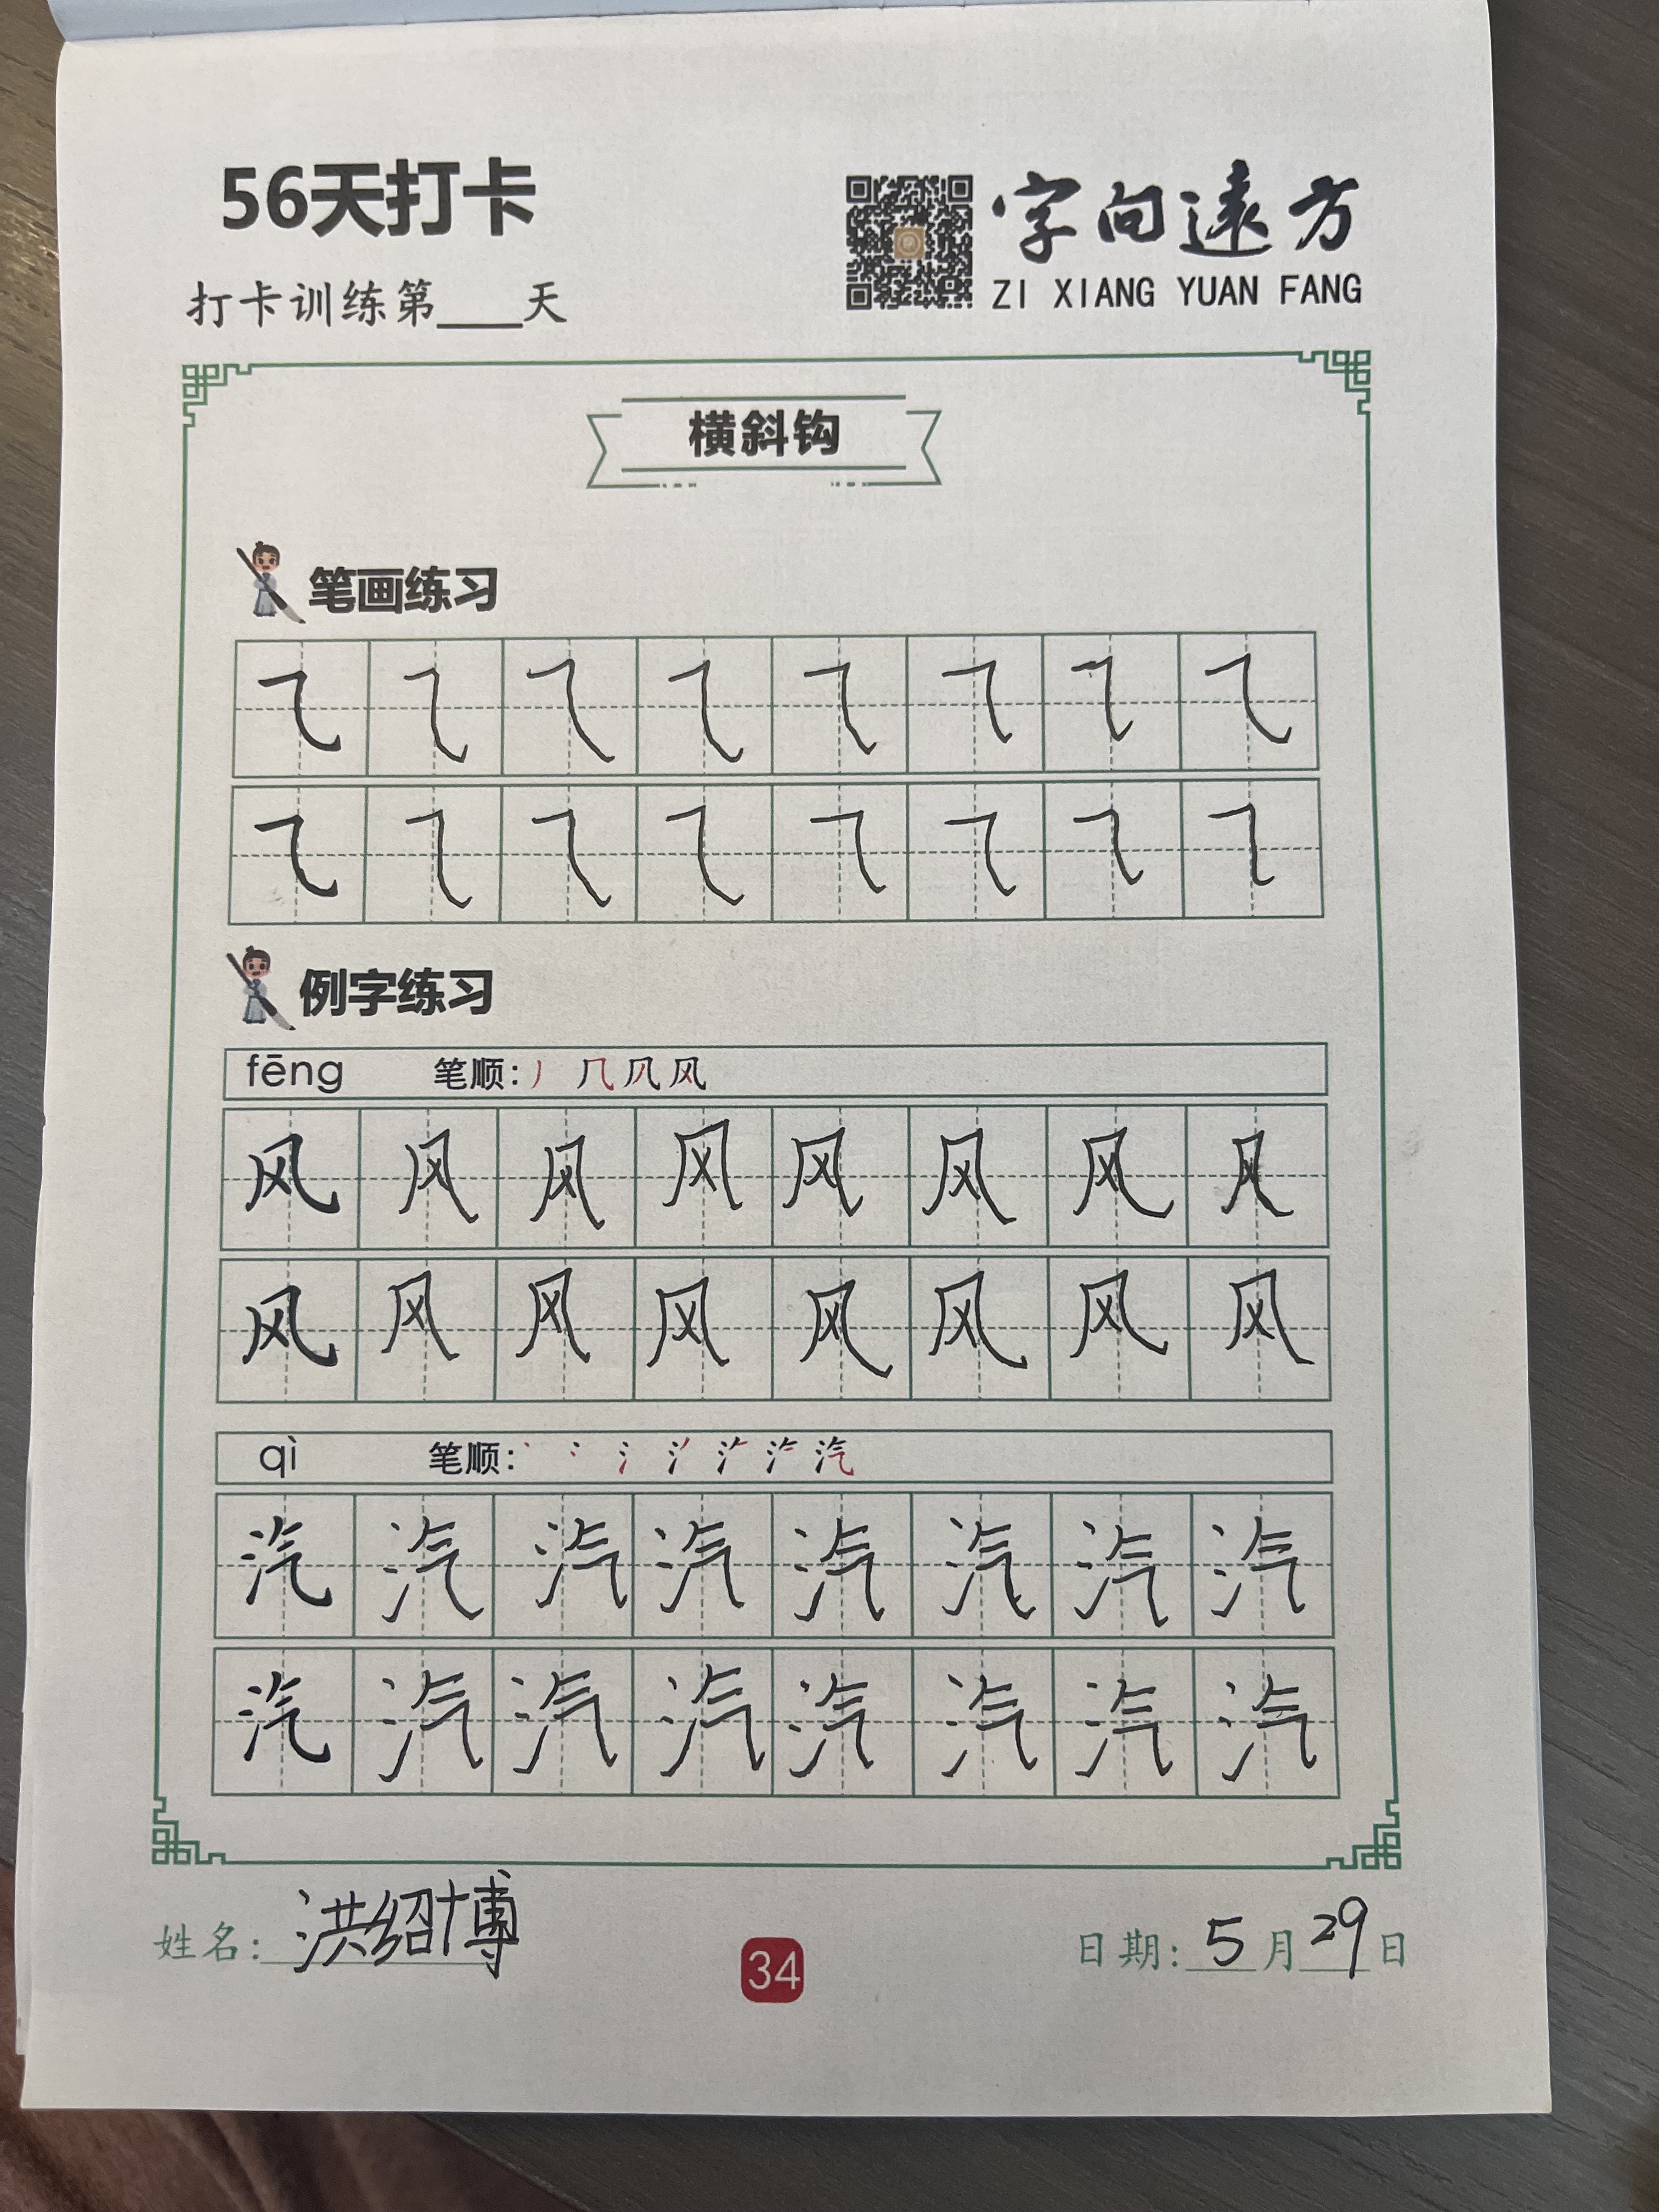 56天打卡
字向遠方
打卡训练第____天
ZI XIANG YUAN FANG
横斜钩
笔画练习
㇈ ㇈ ㇈ ㇈ ㇈ ㇈ ㇈ ㇈
㇈ ㇈ ㇈ ㇈ ㇈ ㇈ ㇈ ㇈
例字练习
fēng 笔顺: 丿 几 风 风
风 风 风 风 风 风 风 风
风 风 风 风 风 风 风 风
qì 笔顺: 汽
汽 汽 汽 汽 汽 汽 汽 汽
汽 汽 汽 汽 汽 汽 汽 汽
姓名: 洪绍博
34
日期: 5 月 29 日